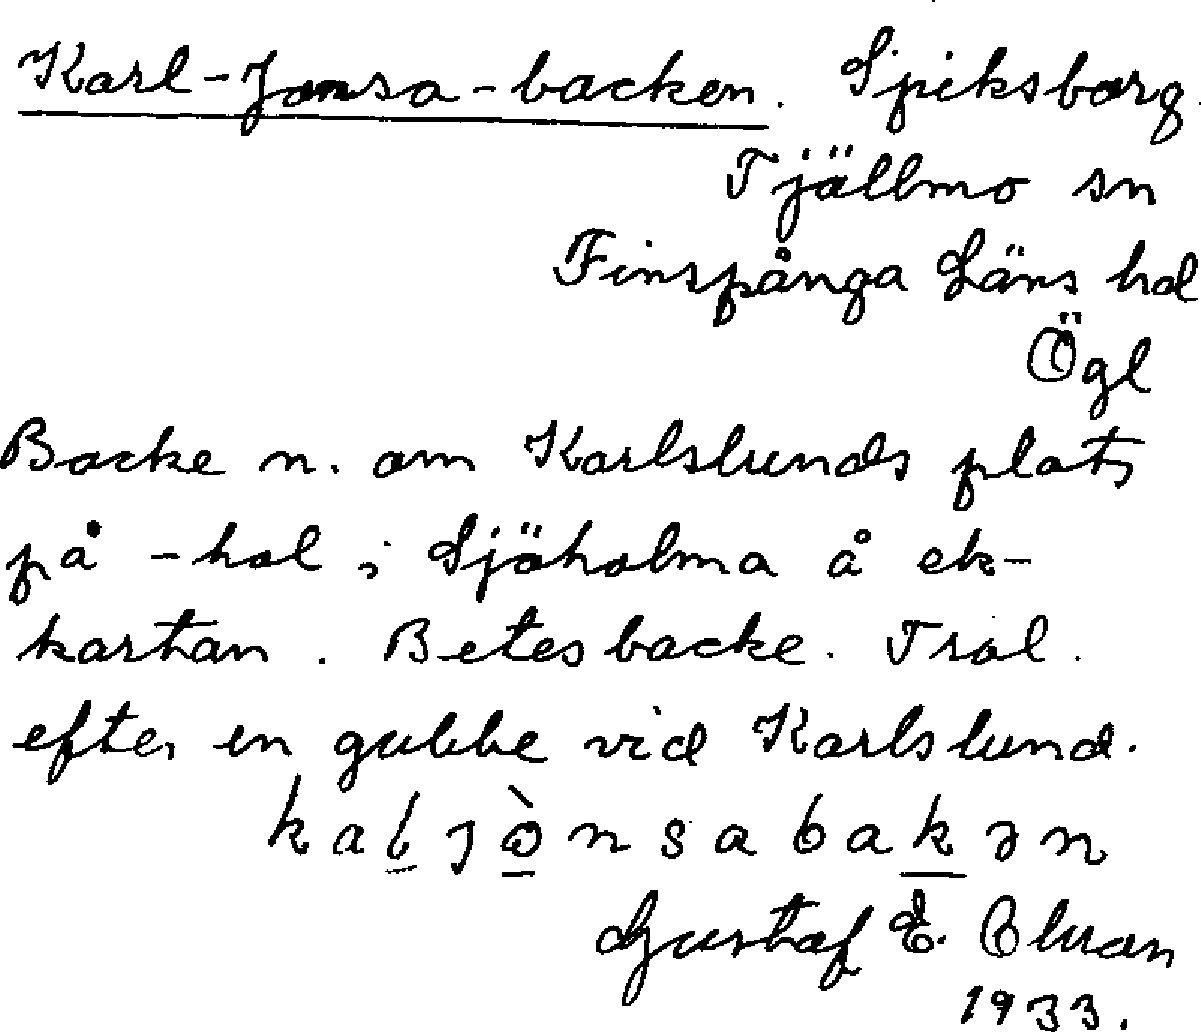 Karl-Jonsa-backen. Spiksborg.
Tjällmo sn
Finspånga Läns hd
Ögl
Backe n. om Karlslunds plats
på -hol i Sjöholma å ek-
kartan. Betesbacke. Trol.
efter en gubbe vid Karlslund.
Gustaf E.
1933.